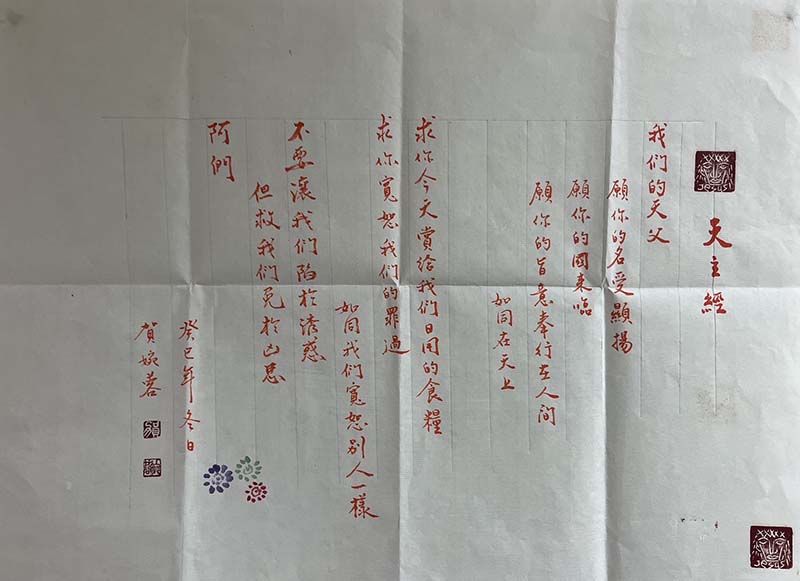 jesus
天主經
我們的天父
願你的名受顯揚
願你的國來臨
願你的旨意奉行在人間
如同在天上
求你今天賞給我們日用的食糧
求你寬恕我們的罪過
如同我們寬恕別人一樣
不要讓我們陷於誘惑
但救我們免於凶惡
阿們
癸巳年冬日
賀婉蓉
jesus